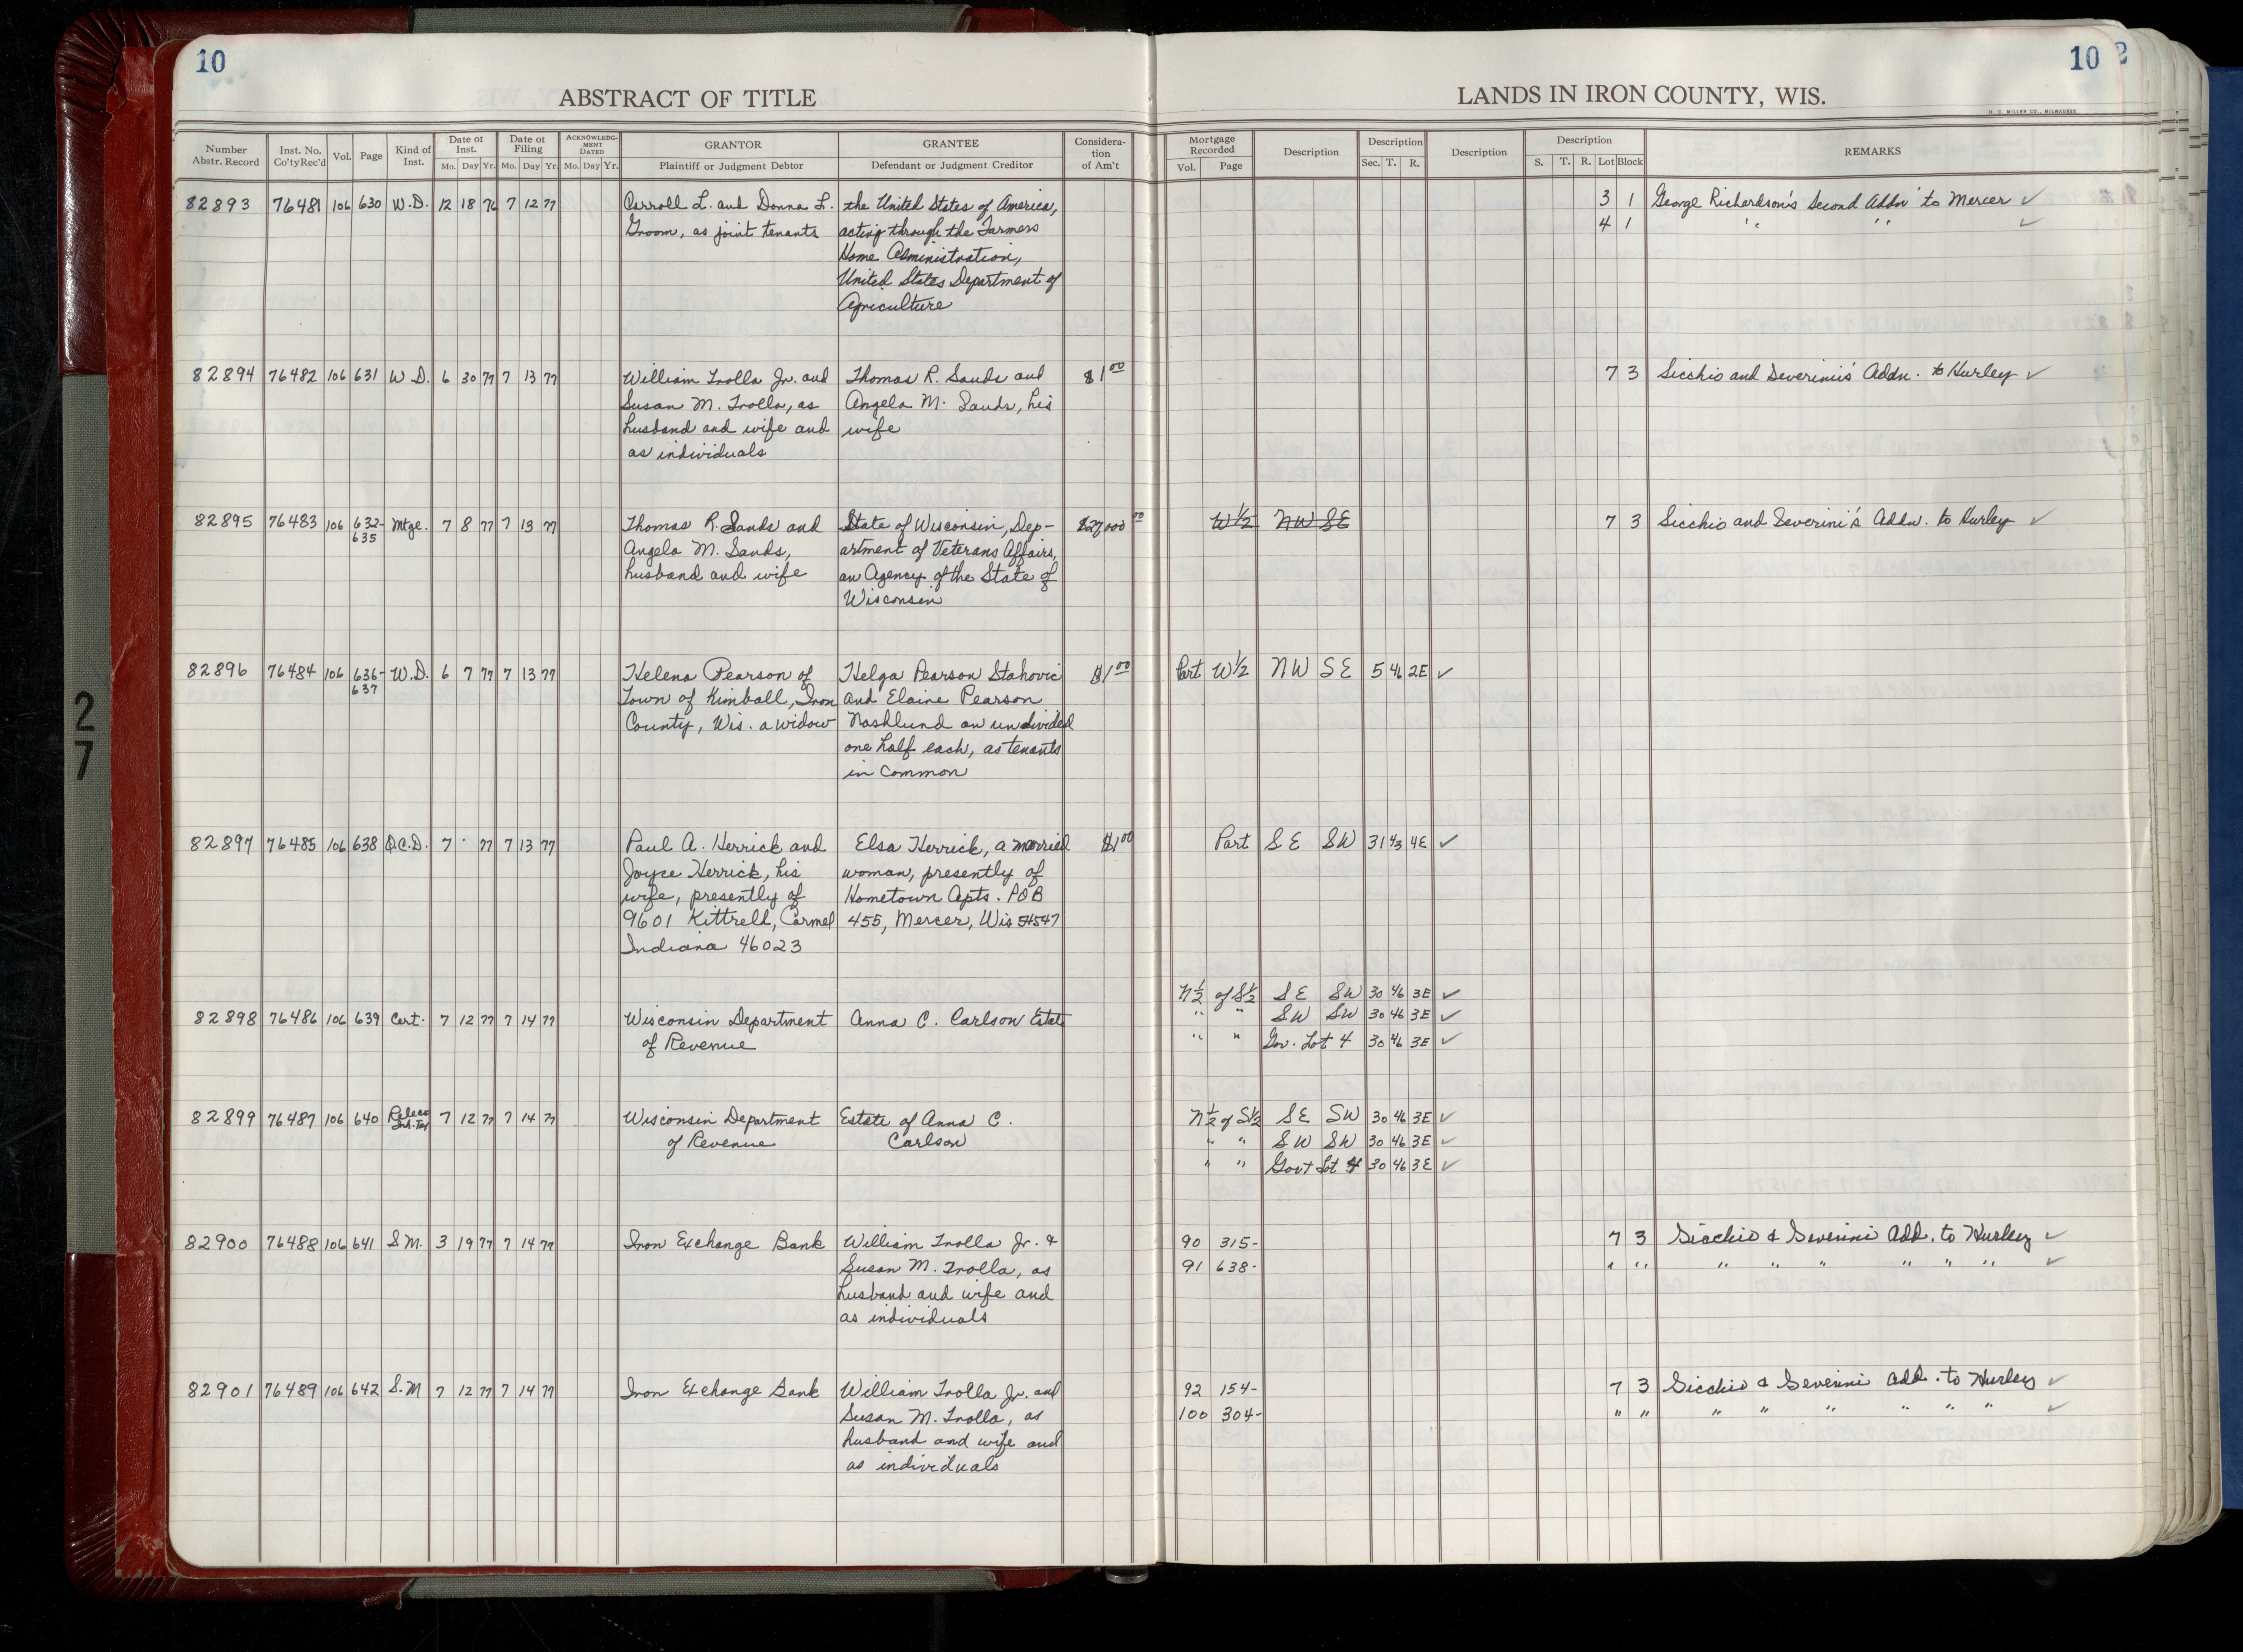 10
ABSTRACT OF TITLE
Number Abstr. Record | Inst. No. Co'ty Rec'd | Vol. | Page | Kind of Inst. | Date of Inst. Mo. Day Yr. | Date of Filing Mo. Day Yr. | ACKNOWLEDGMENT DATED Mo. Day Yr. | GRANTOR Plaintiff or Judgment Debtor | GRANTEE Defendant or Judgment Creditor | Consideration of Am't
82893 76481 106 630 W.D. 12 18 76 7 12 77 Carroll L. and Donna L. the United States of America,
Groom, as joint tenants acting through the Farmers
Home Administration,
United States Department of
Agriculture
82894 76482 106 631 W D. 6 30 77 7 13 77 William Trolla Jr. and Thomas R. Sands and $1 00
Susan M. Trolla, as Angela M. Sands, his
husband and wife and wife
as individuals
82895 76483 106 632- Mtge. 7 8 77 7 13 77 Thomas R. Sands and State of Wisconsin, Dep- $27000 00
635 Angela M. Sands, artment of Veterans Affairs,
husband and wife an Agency of the State of
Wisconsin
82896 76484 106 636- W.D. 6 7 77 7 13 77 Helena Pearson of Helga Pearson Stahovic $1 00
637 Town of Kimball, Iron and Elaine Pearson
County, Wis. a widow Nashlund an undivided
one half each, as tenants
in common
82897 76485 106 638 Q.C.D. 7 77 7 13 77 Paul A. Herrick and Elsa Herrick, a married $1 00
Joyce Herrick, his woman, presently of
wife, presently of Hometown Apts. POB
9601 Kittrell, Carmel 455, Mercer, Wis 54547
Indiana 46023
82898 76486 106 639 Cert. 7 12 77 7 14 77 Wisconsin Department Anna C. Carlson Estate
of Revenue
82899 76487 106 640 Release 7 12 77 7 14 77 Wisconsin Department Estate of Anna C.
Inh. Tax of Revenue Carlson
82900 76488 106 641 S.M. 3 19 77 7 14 77 Iron Exchange Bank William Trolla Jr. &
Susan M. Trolla, as
husband and wife and
as individuals
82901 76489 106 642 S.M 7 12 77 7 14 77 Iron Exchange Bank William Trolla Jr. and
Susan M. Trolla, as
husband and wife and
as individuals
27
10
LANDS IN IRON COUNTY, WIS.
H. C. MILLER CO., MILWAUKEE
Mortgage Recorded Vol. Page | Description | Description Sec. T. R. | Description | Description S. T. R. Lot Block | REMARKS
3 1 George Richardson's Second Addn' to Mercer ✓
4 1 " " ✓
7 3 Sicchio and Severinii's Addn. to Hurley ✓
W 1/2 NW SE 7 3 Sicchio and Severini's Addn. to Hurley ✓
Part W 1/2 NW SE 5 46 2E ✓
Part SE SW 31 43 4E ✓
N 1/2 of S 1/2 SE SW 30 46 3E ✓
" " SW SW 30 46 3E ✓
" " Gov. Lot 4 30 46 3E ✓
N 1/2 of S 1/2 SE SW 30 46 3E ✓
" " SW SW 30 46 3E ✓
" " Govt Lot 4 30 46 3E ✓
90 315- 7 3 Sicchio & Severini Add. to Hurley ✓
91 638- " " " " " " " " ✓
92 154- 7 3 Sicchio & Severini Add. to Hurley ✓
100 304- " " " " " " " " ✓